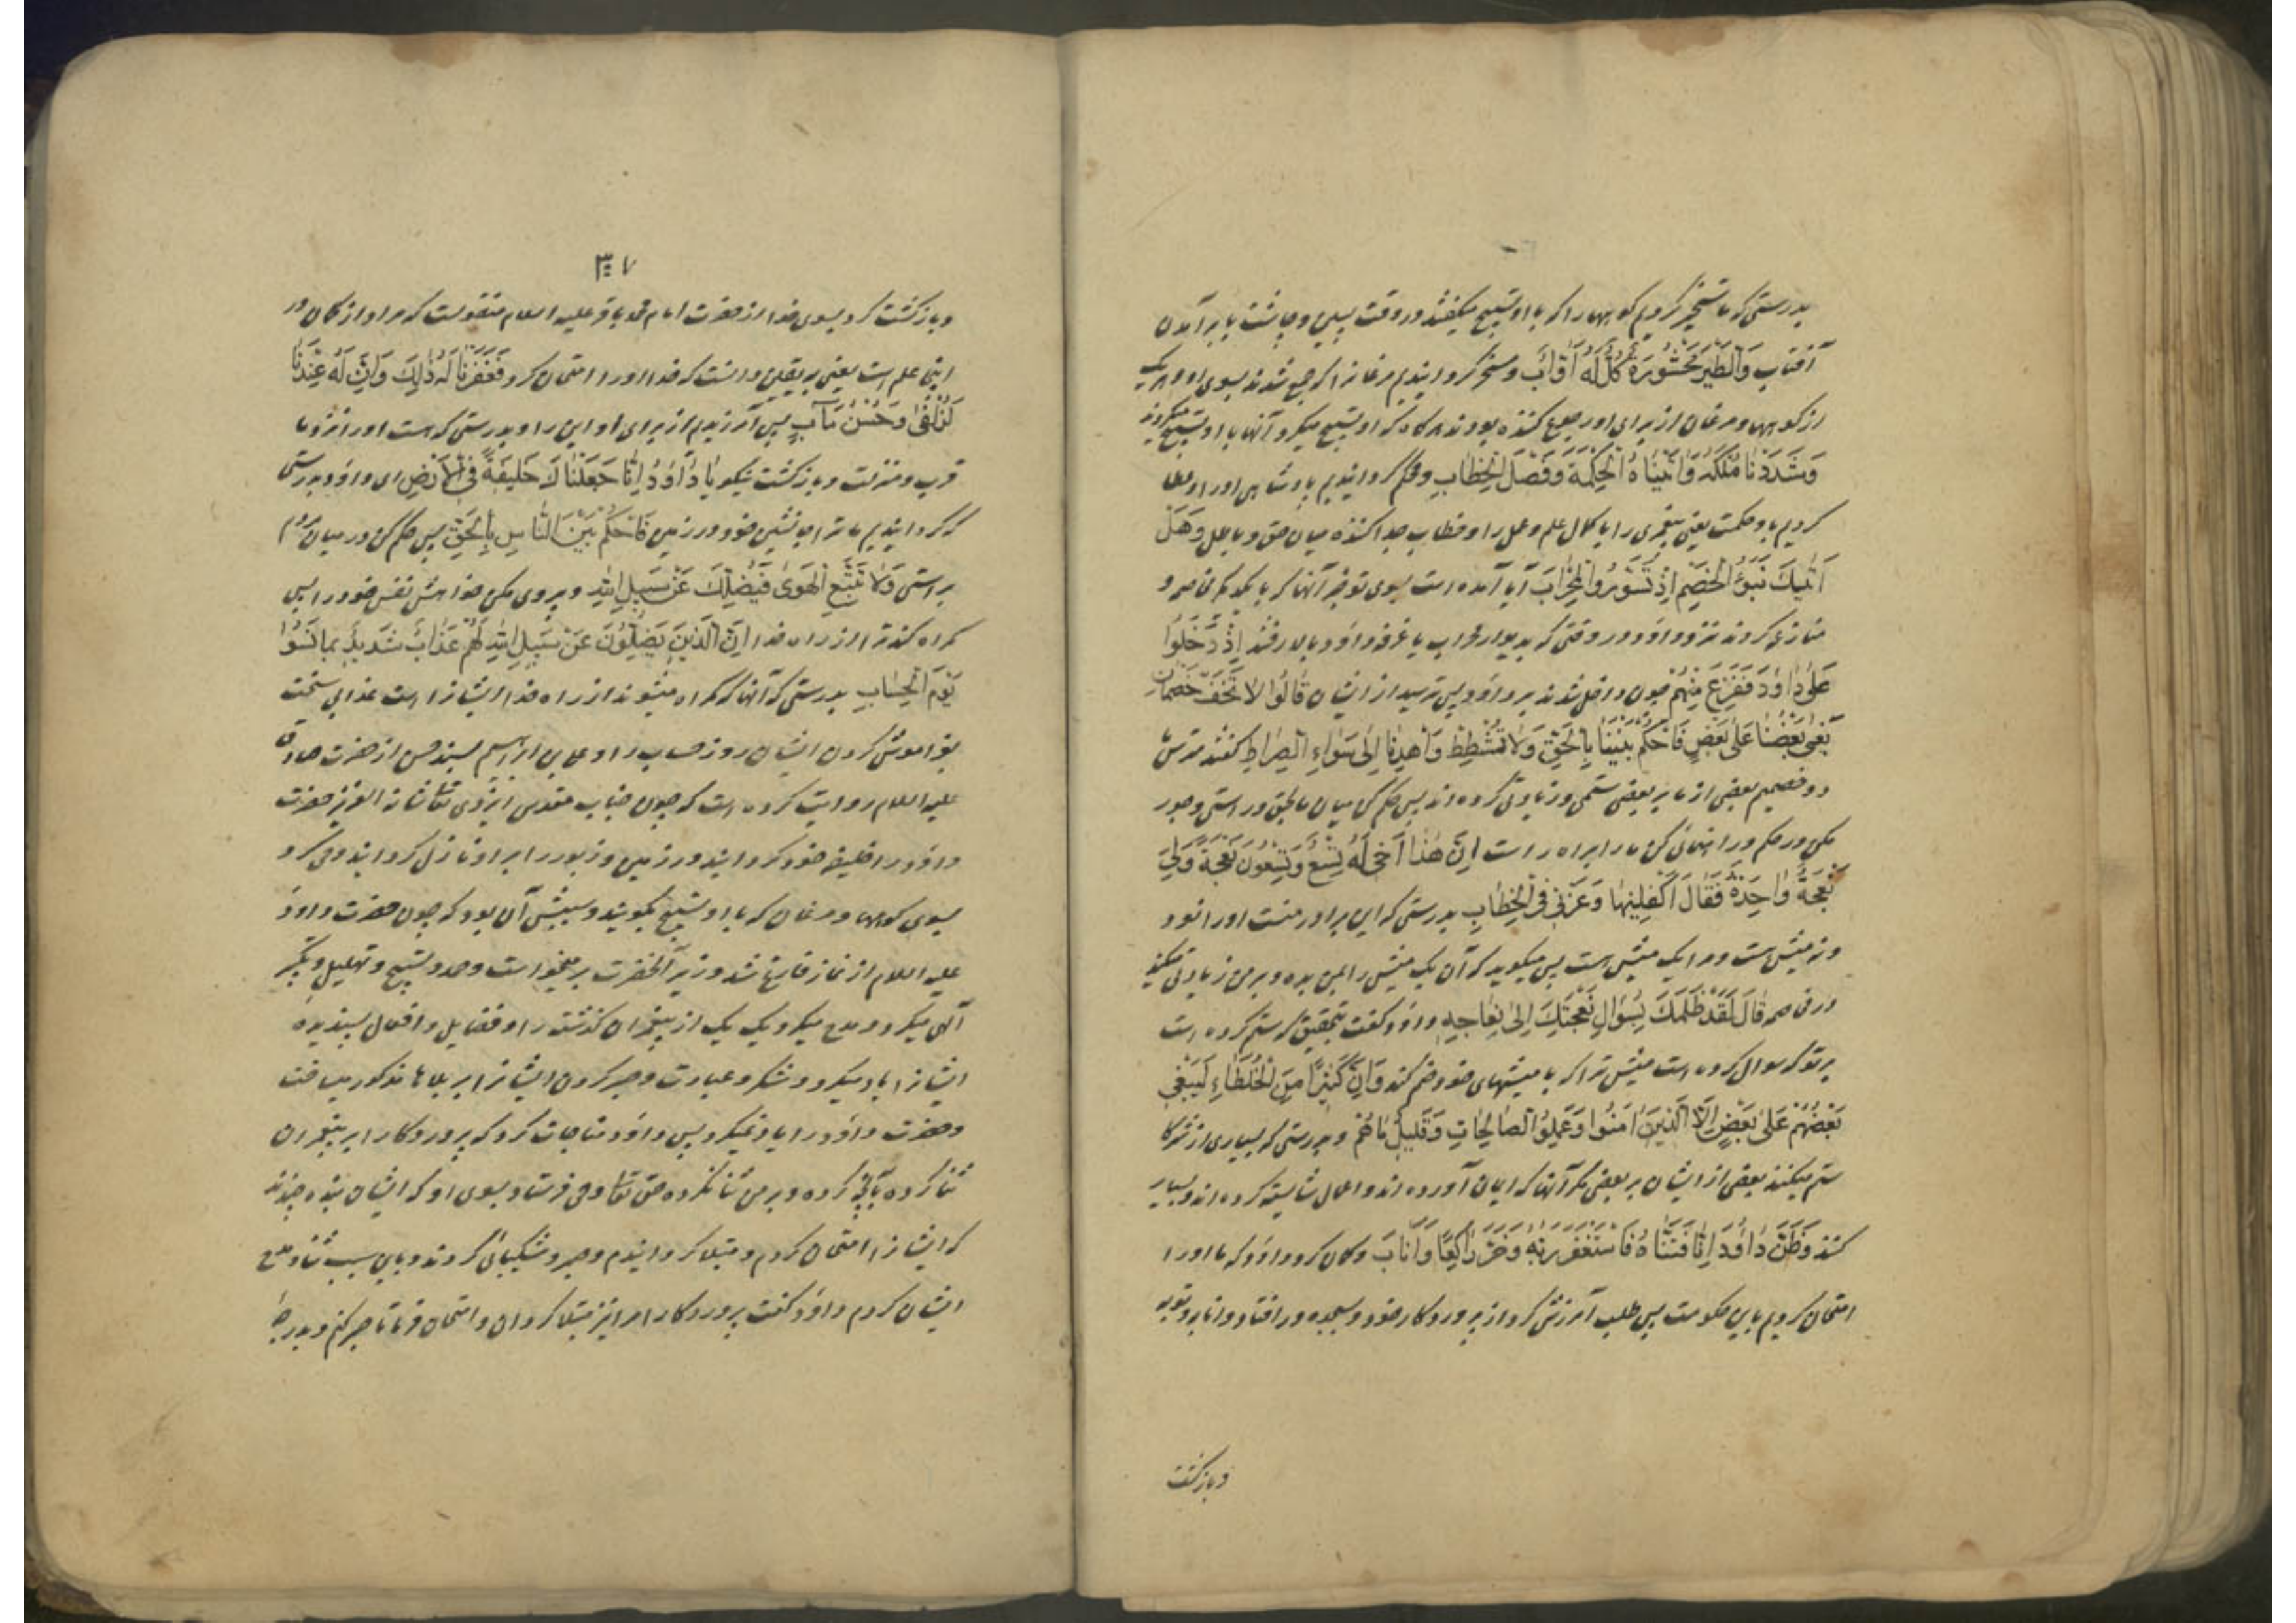 بدرستی که ما تسخیر کردیم کوهها را که با او تسبیح میگفتند در وقت پسین و چاشت یا برآمدن
آفتاب وَالطَّیْرَ مَحْشُورَةً کُلٌّ لَهُ أَوَّابٌ و مسخر گردانیدیم مرغانرا که جمع شدند بسوی او و هر یک
از کوهها و مرغان از برای او رجوع کننده بودند هرگاه که او تسبیح میکرد آنها با او تسبیح میکردند
وَشَدَدْنَا مُلْکَهُ وَآتَیْنَاهُ الْحِکْمَةَ وَفَصْلَ الْخِطَابِ و محکم گردانیدیم پادشاهی او را و عطا
کردیم باو حکمت یعنی پیغمبری را یا کمال علم و عمل را و خطاب جدا کننده میان حق و باطل وَهَلْ
أَتٰیکَ نَبَؤُ الْخَصْمِ إِذْ تَسَوَّرُوا الْمِحْرَابَ آیا آمده است بسوی تو خبر آنها که با یکدیگر مخاصمه و
منازعه کردند نزد داود در وقتی که بدیوار محراب یا غرفه داود بالا رفتند إِذْ دَخَلُوا
عَلٰی دَاوُدَ فَفَزِعَ مِنْهُمْ چون داخل شدند بر داود پس ترسید از ایشان قَالُوا لَا تَخَفْ خَصْمَانِ
بَغٰی بَعْضُنَا عَلٰی بَعْضٍ فَاحْکُمْ بَیْنَنَا بِالْحَقِّ وَلَا تُشْطِطْ وَاهْدِنَا إِلٰی سَوَاءِ الصِّرَاطِ گفتند مترس ما
دو خصمیم بعضی از ما بر بعضی ستمی و زیادتی کرده اند پس حکم کن میان ما بحق و راستی و جور
مکن در حکم و راهنمائی کن ما را براه راست إِنَّ هٰذَا أَخِی لَهُ تِسْعٌ وَتِسْعُونَ نَعْجَةً وَلِیَ
نَعْجَةٌ وَاحِدَةٌ فَقَالَ أَکْفِلْنِیهَا وَعَزَّنِی فِی الْخِطَابِ بدرستی که این برادر منست او را نود
و نه میش است و مرا یک میش است پس میگوید که آن یک میش را بمن بده و بر من زیادتی میکند
در مخاصمه قَالَ لَقَدْ ظَلَمَکَ بِسُؤَالِ نَعْجَتِکَ إِلٰی نِعَاجِهِ داود گفت بتحقیق که ستم کرده است
بر تو که سوال کرده است میش ترا که با میشهای خود ضم کند وَإِنَّ کَثِیرًا مِنَ الْخُلَطَاءِ لَیَبْغِی
بَعْضُهُمْ عَلٰی بَعْضٍ إِلَّا الَّذِینَ آمَنُوا وَعَمِلُوا الصَّالِحَاتِ وَقَلِیلٌ مَا هُمْ و بدرستی که بسیاری از شرکا
ستم میکنند بعضی از ایشان بر بعضی مگر آنها که ایمان آورده اند و اعمال شایسته کرده اند و بسیار
کمند وَظَنَّ دَاوُدُ أَنَّمَا فَتَنَّاهُ فَاسْتَغْفَرَ رَبَّهُ وَخَرَّ رَاکِعًا وَأَنَابَ و گمان کرد داود که ما او را
امتحان کردیم باین حکومت پس طلب آمرزش کرد از پروردگار خود و بسجده در افتاد و انابه و توبه
وبازگشت
۳۰۷
و بازگشت کرد بسوی خدا از حضرت امام محمد باقر علیه السلام منقولست که مراد از گمان در
اینجا علم است یعنی به یقین دانست که خدا او را امتحان کرد فَغَفَرْنَا لَهُ ذٰلِکَ وَإِنَّ لَهُ عِنْدَنَا
لَزُلْفٰی وَحُسْنَ مَآبٍ پس آمرزیدیم از برای او این را و بدرستی که هست او را نزد ما
قرب و منزلت و بازگشت نیکو یَا دَاوُدُ إِنَّا جَعَلْنَاکَ خَلِیفَةً فِی الْأَرْضِ ای داود بدرستی
که گردانیدیم ما ترا جانشین خود در زمین فَاحْکُمْ بَیْنَ النَّاسِ بِالْحَقِّ پس حکم کن در میان مردم
براستی وَلَا تَتَّبِعِ الْهَوٰی فَیُضِلَّکَ عَنْ سَبِیلِ اللهِ و پیروی مکن خواهش نفس خود را پس
گمراه کند ترا از راه خدا إِنَّ الَّذِینَ یَضِلُّونَ عَنْ سَبِیلِ اللهِ لَهُمْ عَذَابٌ شَدِیدٌ بِمَا نَسُوا
یَوْمَ الْحِسَابِ بدرستی که آنها که گمراه میشوند از راه خدا ایشانرا است عذابی سخت
بفراموش کردن ایشان روز حساب را و علی بن ابراهیم بسند حسن از حضرت صادق
علیه السلام روایت کرده است که چون جناب مقدس ایزدی تعالی شانه العزیز حضرت
داود را خلیفه خود گردانید در زمین و زبور را بر او نازل گردانید وحی کرد
بسوی کوهها و مرغان که با او تسبیح بگویند و سببش آن بود که چون حضرت داود
علیه السلام از نماز فارغ شد وزیر آنحضرت برمیخواست و حمد و تسبیح و تهلیل و تکبیر
آلهی میکرد و مدح میکرد یک یک از پیغمبران گذشته را و فضایل و افعال پسندیده
ایشانرا یاد میکرد و شکر و عبادت و صبر کردن ایشانرا بر بلاها مذکور میساخت
و حضرت داود را یاد نمیکرد پس داود مناجات کرد که پروردگارا بر پیغمبران
ثنا کرده بآنچه کرده و بر من ثنا نکرده حق تعالی وحی فرستاد بسوی او که ایشان بنده چندند
که ایشانرا امتحان کردم و مبتلا گردانیدم و صبر و شکیبائی کردند و باین سبب ثنا و مدح
ایشان کردم داود گفت پروردگارا مرا نیز مبتلا گردان و امتحان فرما تا صبر کنم و بدرجهٔ